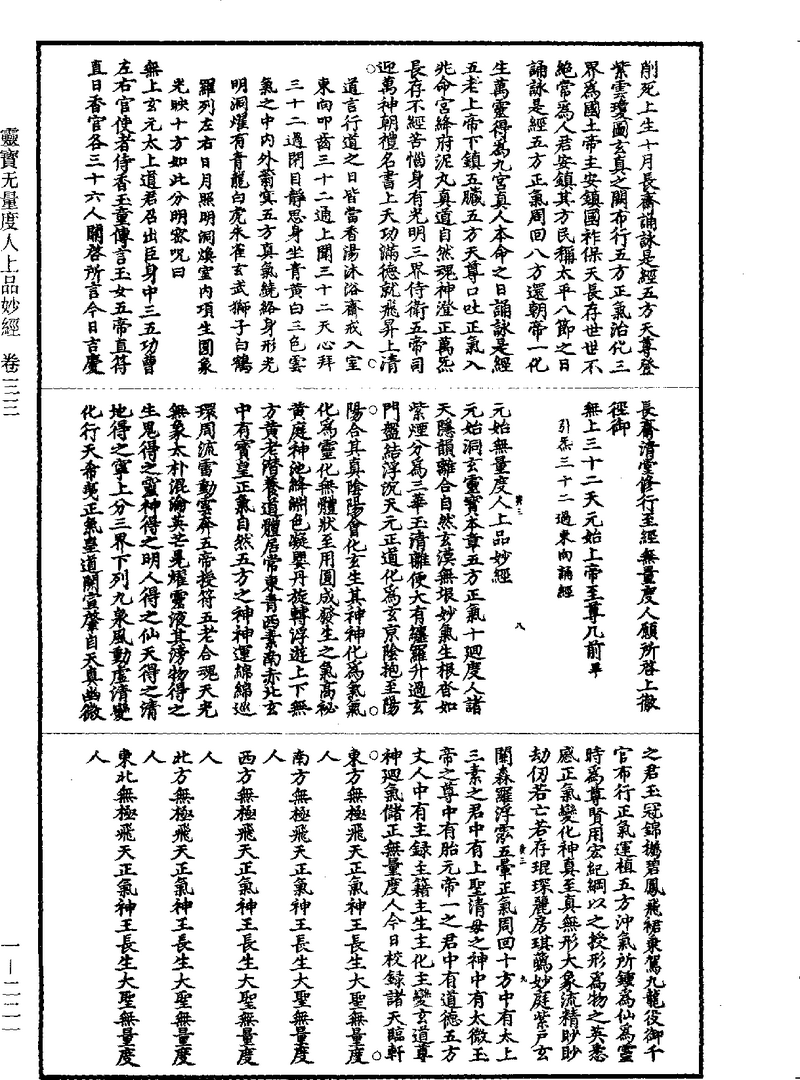 削死上生十月長齋誦詠是經五方天尊登
紫雲瓊圖玄真之闕布行五方正氣治化三
界為國土帝主安鎮國祚保天長存世世不
絕常為人君安鎮其方民稱太平八節之日
誦詠是經五方正氣周回八方還朝帝一化
生萬靈得為九宮真人本命之日誦詠是經
五老上帝下鎮五臟五方天尊口吐正氣入
兆命宮絳府泥丸真道自然魂神澄正萬炁
長存不經苦惱身有光明三界侍衛五帝司
迎萬神朝禮名書上天功滿德就飛昇上清
道言行道之日皆當香湯沐浴齋戒入室
東向叩齒三十二通上聞三十二天心拜
三十二過閉目靜思身坐青黃白三色雲
氣之中內外蓊冥五方真氣繞絡身形光
明洞耀有青龍白虎朱雀玄武獅子白鶴
羅列左右日月照明洞煥室內項生圓象
光映十方如此分明密呪曰
無上玄元太上道君召出臣身中三五功曹
左右官使者侍香玉童傳言玉女五帝直符
直日香官各三十六人關啓所言今日吉慶
長齋清堂修行至經無量度人願所啓上徹
徑御
無上三十二天元始上帝至尊几前畢
引炁三十二過東向誦經
元始無量度人上品妙經
元始洞玄靈寶本章五方正氣十迴度人諸
天隱韻離合自然玄漠無垠妙氣生根杳如
紫煙分為三華玉清離便大有纏羅升過玄
門盤結浮沉天元正道化為玄京陰抱至陽
陽合其真陰陽會化玄生其神神化為氣氣
化為靈化無體狀至用圓成發生之氣高祕
黃庭神池絳淵色凝嬰丹旋轉浮遊上下無
方黃老潛養道體居常東青西素南赤北玄
中有寶皇正氣自然五方之神神運綿綿巡
環周流雷動雲奔五帝授符五老合魂天光
無象太朴混淪英芒晃耀靈液其滂物得之
生鬼得之靈神得之明人得之仙天得之清
地得之寧上分三界下列九泉風動虛清變
化行天希夷正氣皇道開宣肇自天真幽微
之君玉冠錦楊碧鳳飛裙乘駕九龍役御千
官布行正氣運植五方沖氣所鍾為仙為靈
時為尊賢用宏紀綱以之授形為物之英悉
感正氣變化神真至真無形大象流精眇眇
劫仞若亡若存琨琛麗房琪蘤妙庭紫戶玄
闌森羅浮霐五暈正氣周回十方中有太上
三素之君中有上聖清母之神中有太微玉
帝之尊中有胎元帝一之君中有道德五方
丈人中有主錄主籍主生主化主變玄道尊
神迴氣儲正無量度人今日校錄諸天臨軒
東方無極飛天正氣神王長生大聖無量度
人
南方無極飛天正氣神王長生大聖無量度
人
西方無極飛天正氣神王長生大聖無量度
人
北方無極飛天正氣神王長生大聖無量度
人
東北無極飛天正氣神王長生大聖無量度
人
靈寶无量度人上品妙經 卷三三
一—二二一